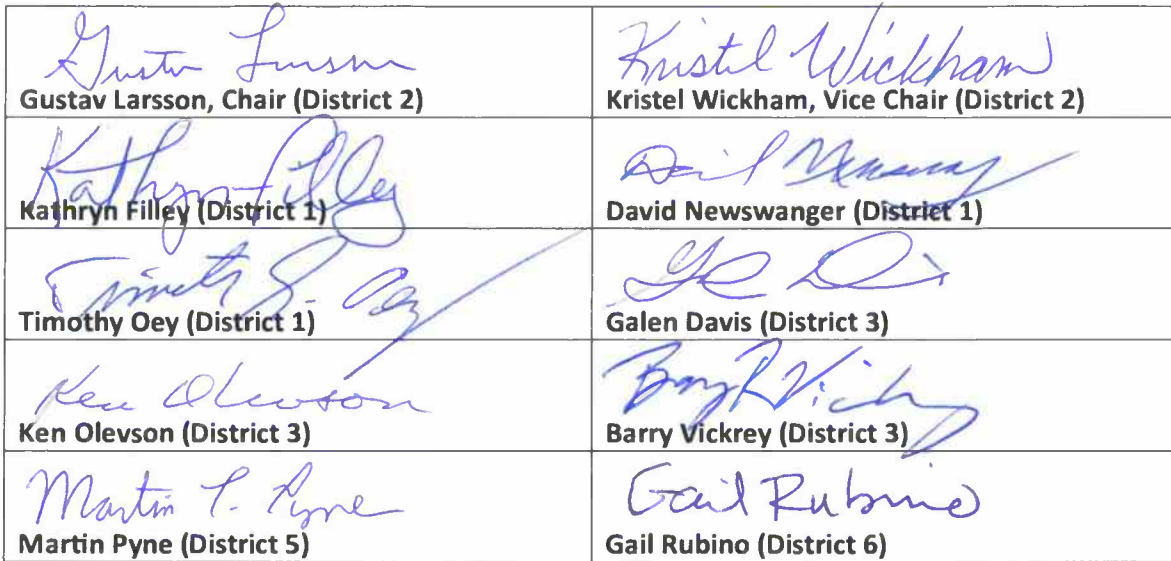 Gustav Larsson
Gustav Larsson, Chair (District 2)
Kristel Wickham
Kristel Wickham, Vice Chair (District 2)
Kathryn Filley
Kathryn Filley (District 1)
David Newswanger (District 1)
Timothy J. Oey
Timothy Oey (District 1)
Galen Davis (District 3)
Ken Olevson
Ken Olevson (District 3)
Barry Vickrey (District 3)
Martin P. Pyne
Martin Pyne (District 5)
Gail Rubino
Gail Rubino (District 6)